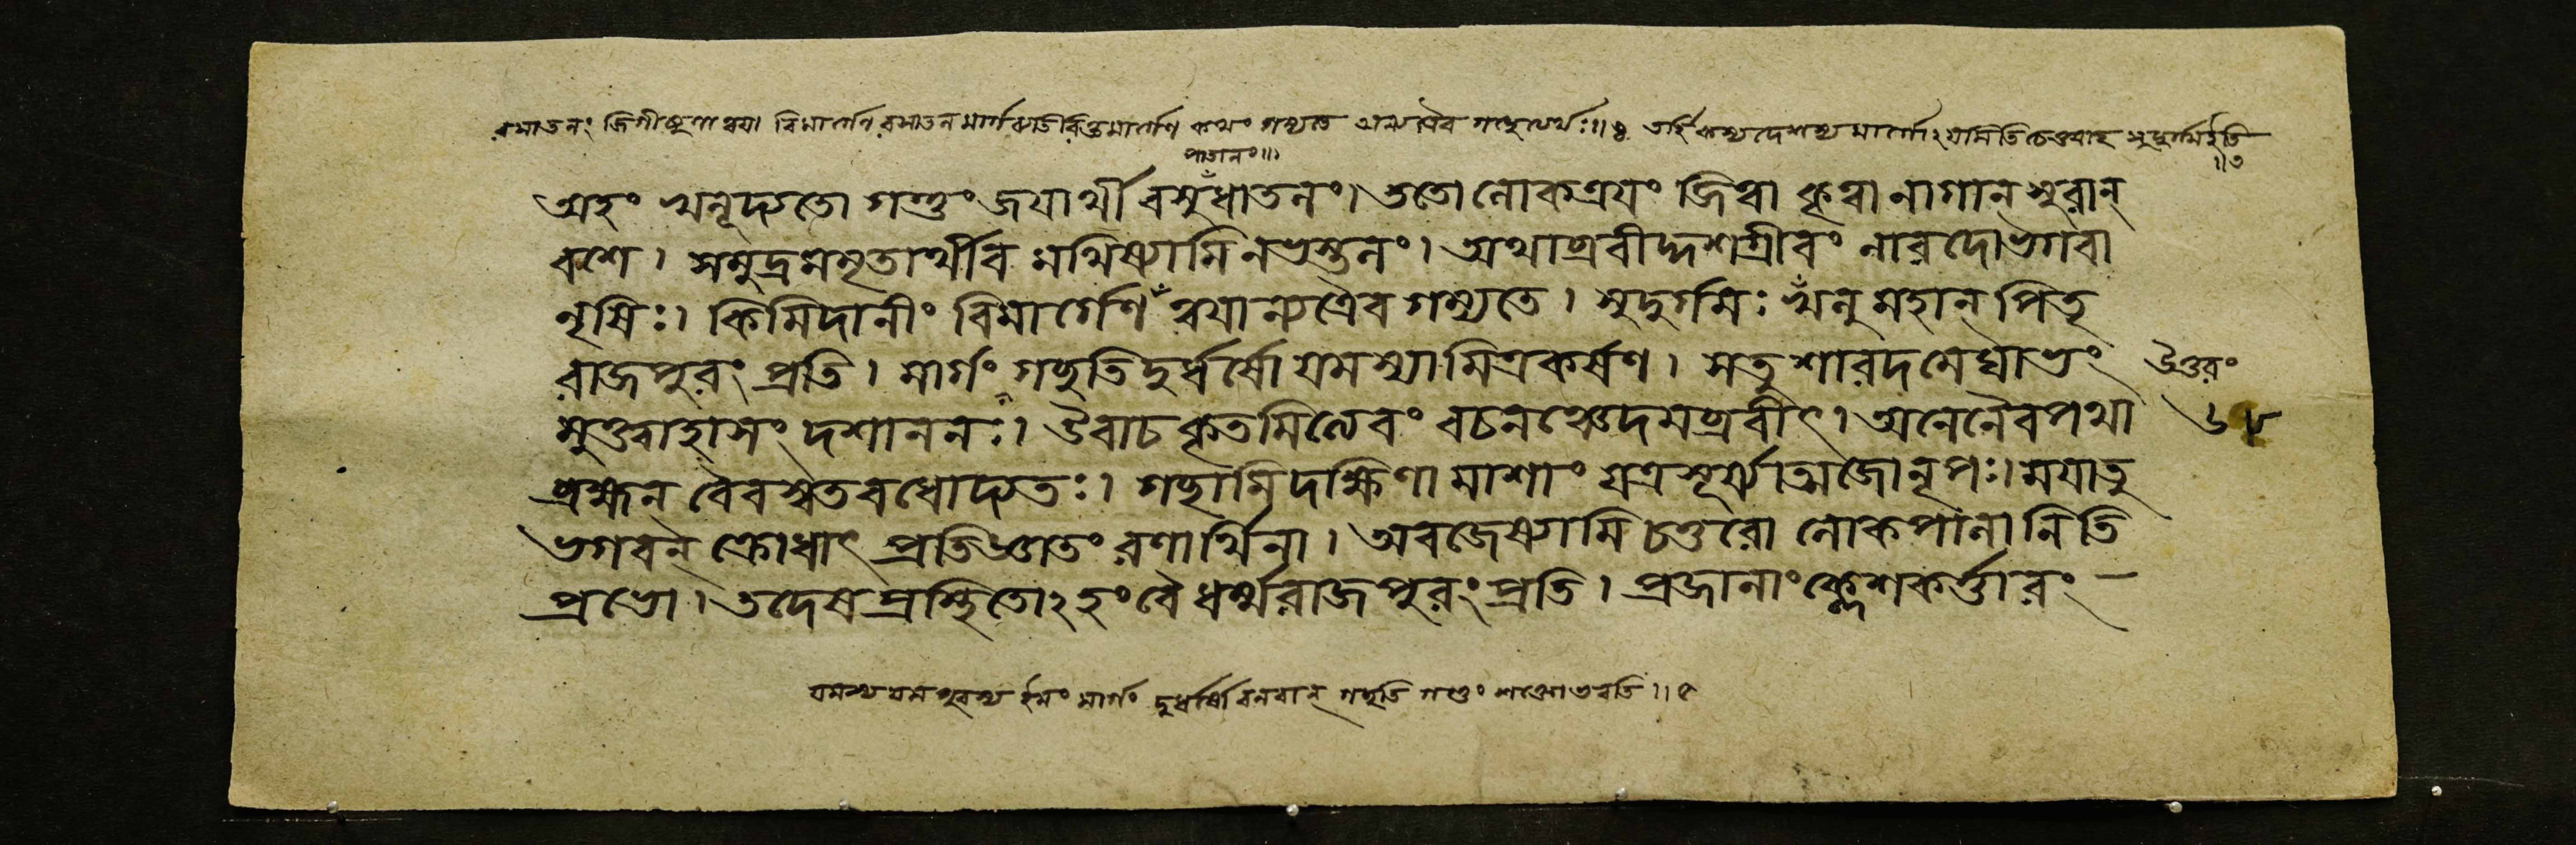 রসাতলং জিগীষুণা ত্বয়া বিমার্গেণ রসাতলমার্গব্যতিরিক্তমার্গেণ কথং গম্যতে অন্যত্রৈব গচ্ছেত্যর্থঃ॥
পাতালং॥
অহং খলূদ্যতো গন্তুং জয়ার্থী বসুধাতলং। ততো লোকত্রয়ং জিত্বা কৃত্বা নাগান্ সুরান্
বশে। সমুদ্রমমৃতার্থীব মথিষ্যামি নভস্তলং। অথাব্রবীদ্দশগ্রীবং নারদো ভগবা
নৃষিঃ। কিমিদানীং বিমার্গেণ ত্বয়ান্যত্রৈব গম্যতে। সুদুর্গমঃ খলু মহান্ পিতৃ
রাজপুরং প্রতি। মার্গং গচ্ছতি দুর্ধর্ষো যমস্যামিত্রকর্ষণ। সতু শারদমেঘাভং
উত্তরং
মুক্ত্বাহাসং দশাননঃ। উবাচ কৃতমিত্যেবং বচনঞ্চেদমব্রবীৎ। অনেনৈব পথা
৬৮
ব্রহ্মন্ বৈবস্বতবধোদ্যতঃ। গচ্ছামি দক্ষিণামাশাং যত্র সূর্য্যাত্মজো নৃপঃ। ময়াতু
ভগবন্ ক্রোধাৎ প্রতিজ্ঞাতং রণার্থিনা। অবজেষ্যামি চতুরো লোকপালানিতি
প্রভো। তদেষ প্রস্থিতোঽহং বৈ ধর্ম্মরাজপুরং প্রতি। প্রজানাং ক্লেশকর্ত্তারং
যমস্য যমপুরস্য ইমং মার্গং দুর্ধর্ষো বলবান্ গচ্ছতি গন্তুং শক্তো ভবতি॥ ৫